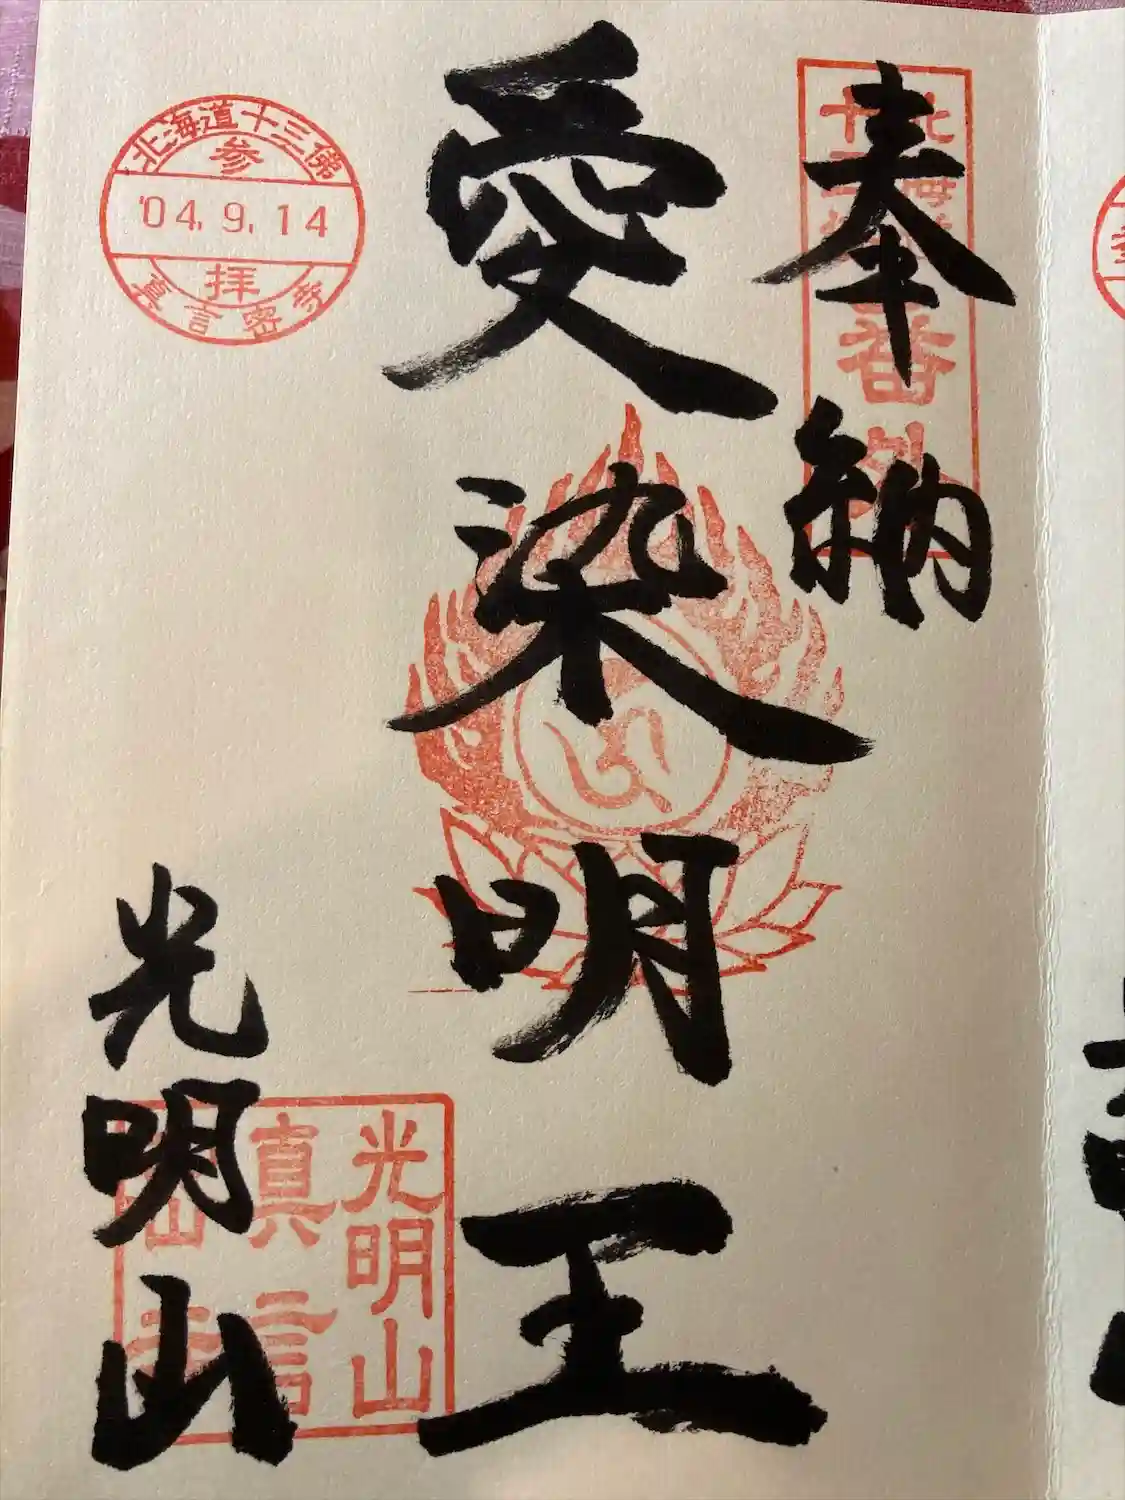 奉納
愛染明王
光明山
北海道十三佛
参
'04. 9. 14
拝
真言密寺
番外
光明山
真言
密寺